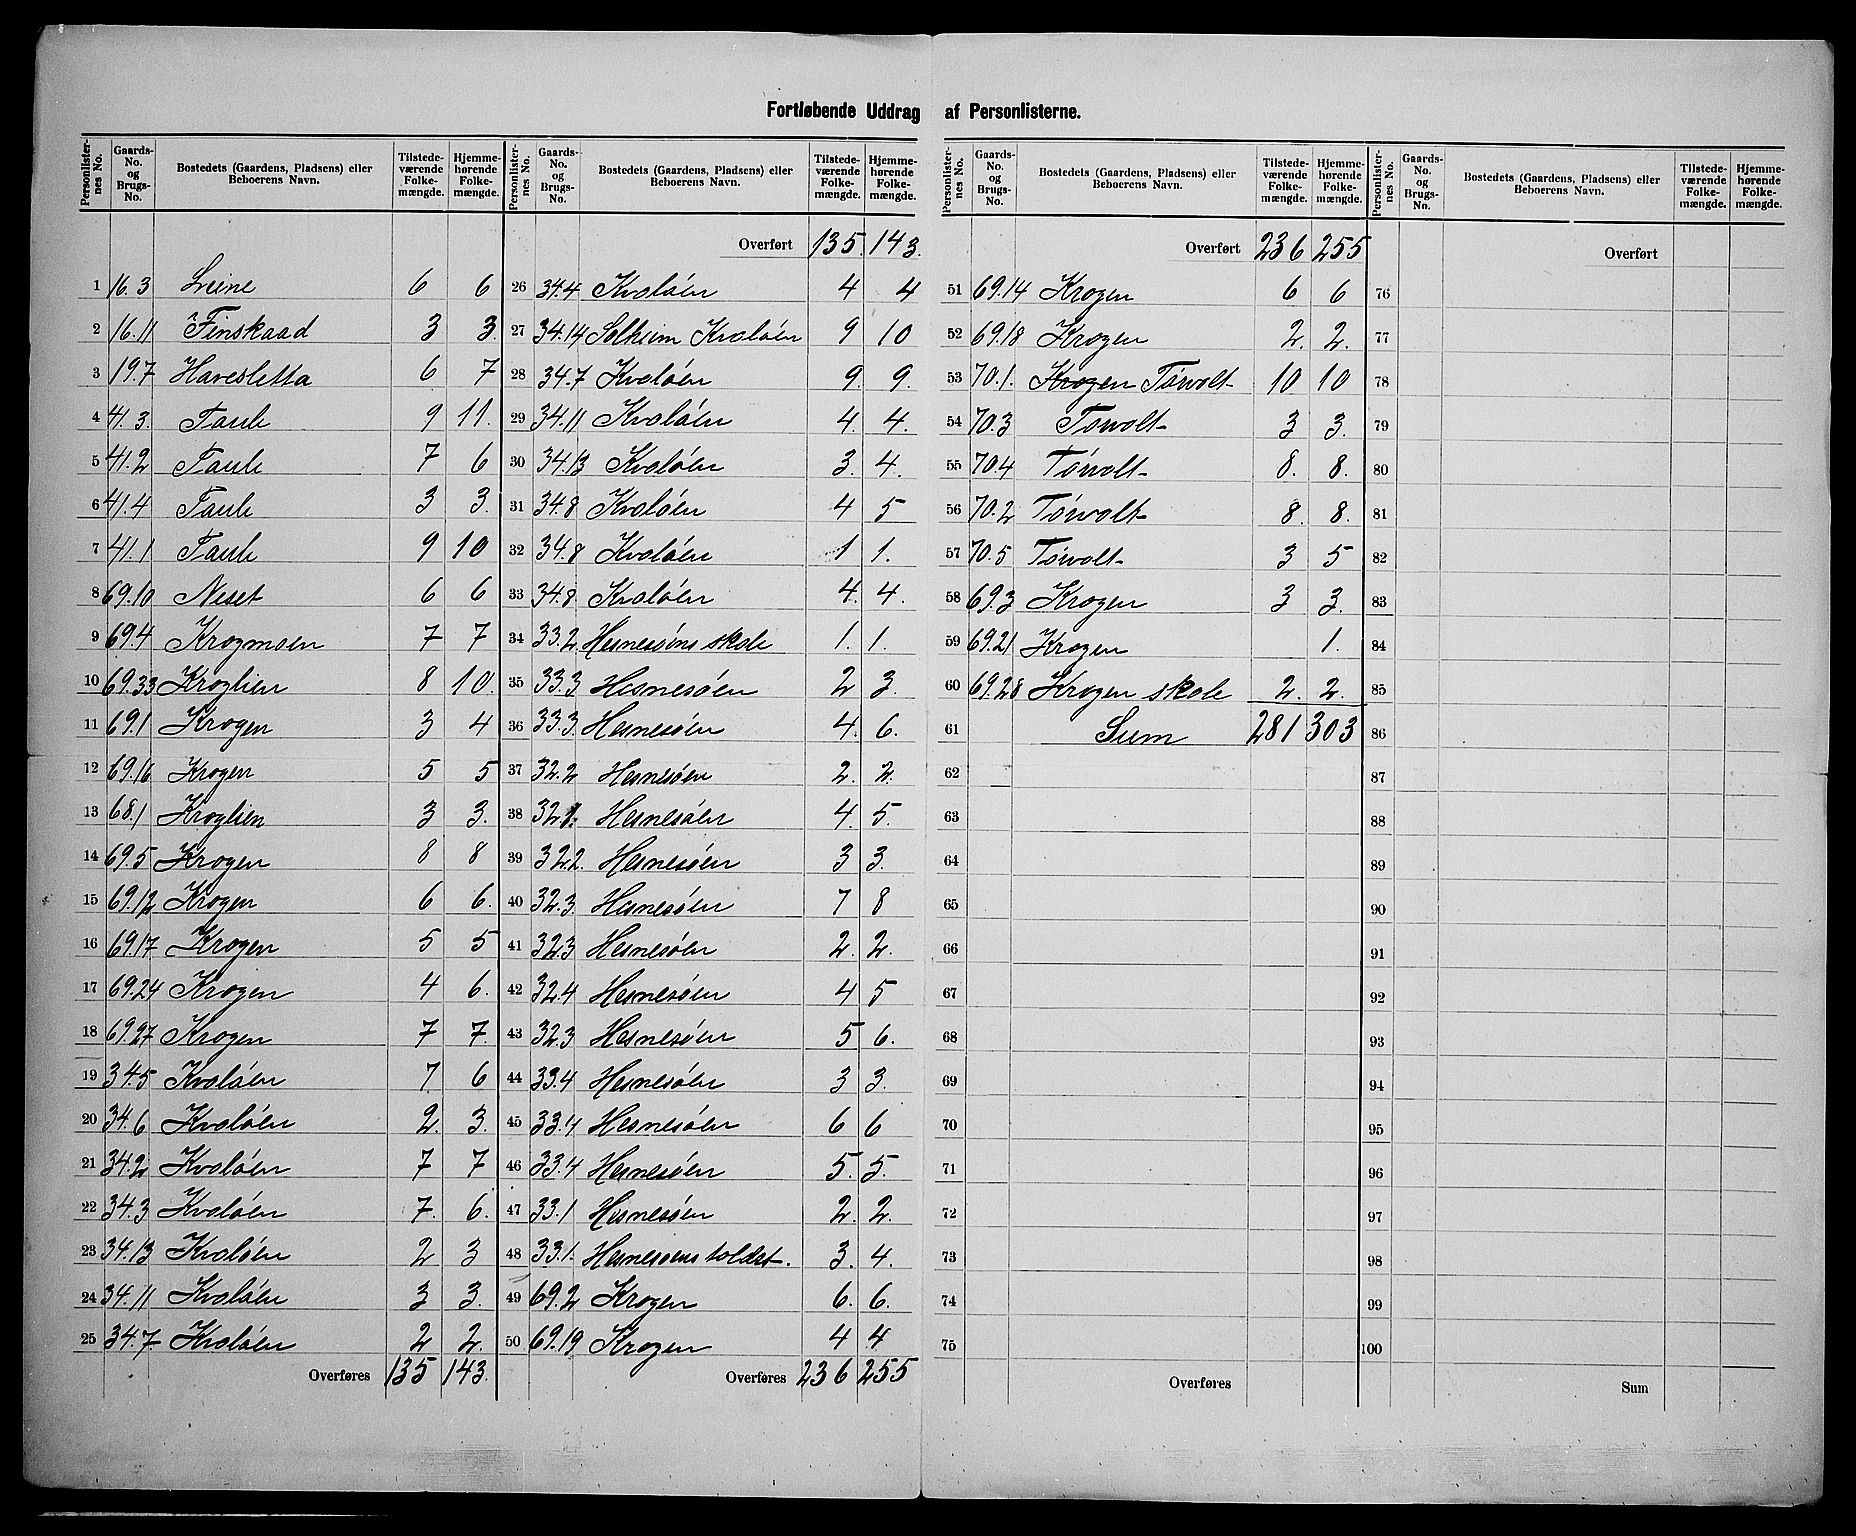 Fortløbende Uddrag af Personlisterne.
Personlister-nes No. | Gaards-No. og Brugs-No. | Bostedets (Gaardens, Pladsens) eller Beboerens Navn. | Tilstede-værende Folke-mængde. | Hjemme-hørende Folke-mængde.
1 16.3 Leine 6 6
2 16.11 Finskaad 3 3.
3 19.7 Haveslette 6 7
4 41.3. 9 11.
5 41.2 7 6
6 41.4 3 3.
7 41.1 9 10
8 69.10 Neset 6 6
9 69.4 Krogmoen 7 7
10 69.33 Kroglien 8 10.
11 69.1 Krogen 3 4
12 69.16 Krogen 5 5
13 68.1 Kroglien 3 3.
14 69.5 Krogen 8 8
15 69.12 Krogen 6 6.
16 69.17 Krogen 5 5
17 69.24 Krogen 4 6.
18 69.27 Krogen 7 7.
19 34.5 Kvaløen 7 6
20 34.6 Kvaløen 2. 3.
21 34.2 Kvaløen 7 7
22 34.3 Kvaløen 7. 6.
23 34.13 Kvaløen 2 3
24 34.11 Kvaløen 3 3.
25 34.7 Kvaløen 2 2.
Overføres 135 143.
Personlister-nes No. | Gaards-No. og Brugs-No. | Bostedets (Gaardens, Pladsens) eller Beboerens Navn. | Tilstede-værende Folke-mængde. | Hjemme-hørende Folke-mængde.
Overført 135. 143.
26 34.4 Kvaløen 4 4
27 34.14 Solheim Kvaløen 9 10
28 34.7 Kvaløen 9. 9.
29 34.11 Kvaløen 4. 4.
30 34.13 Kvaløen 3. 4.
31 34.8 Kvaløen 4 5
32 34.8 Kvaløen 1 1.
33 34.8 Kvaløen 4. 4.
34 33.2 Hesnesøens skole 1. 1.
35 33.3 Hesnesøen 2 3.
36 33.3. Hesnesøen 4. 6.
37 32.2 Hesnesøen 2. 2.
38 32.1. Hesnesøen 4. 5.
39 32.2. Hesnesøen 3 3.
40 32.3 Hesnesøen 7 8
41 32.3 Hesnesøen 2. 2.
42 32.4 Hesnesøen 4 5
43 32.3 Hesnesøen 5 6.
44 33.4 Hesnesøen 3 3.
45 33.4 Hesnesøen 6 6
46 33.4 Hesnesøen 5. 5.
47 33.1 Hesnesøen 2. 2.
48 33.1. Hesnesøens toldst. 3. 4.
49 69.2 Krogen 6. 6.
50 69.19 Krogen 4 4
Overføres 236 255
Personlister-nes No. | Gaards-No. og Brugs-No. | Bostedets (Gaardens, Pladsens) eller Beboerens Navn. | Tilstede-værende Folke-mængde. | Hjemme-hørende Folke-mængde.
Overført 236 255
51 69.14 Krogen 6 6
52 69.18 Krogen 2. 2.
53 70.1. Krogen Tørvolt 10 10
54 70.3 Tørvolt 3 3.
55 70.4 Tørvolt 8. 8.
56 70.2 Tørvolt 8. 8.
57 70.5 Tørvolt 3 5
58 69.3 Krogen 3 3.
59 69.21 Krogen 1.
60 69.28 Krogen skole 2. 2.
61 Sum 281 303
62
63
64
65
66
67
68
69
70
71
72
73
74
75
Overføres
Personlister-nes No. | Gaards-No. og Brugs-No. | Bostedets (Gaardens, Pladsens) eller Beboerens Navn. | Tilstede-værende Folke-mængde. | Hjemme-hørende Folke-mængde.
Overført
76
77
78
79
80
81
82
83
84
85
86
87
88
89
90
91
92
93
94
95
96
97
98
99
100
Sum